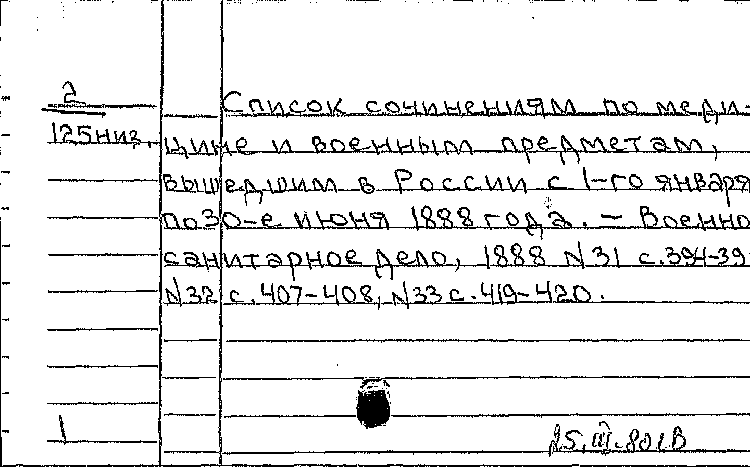 2
125 низ.
Список сочинениям по меди-
цине и военным предметам,
вышедшим в России с 1-го января
по 30-е июня 1888 года. – Военно
санитарное дело, 1888 N31 с.394-39
N32 с.407-408, N33 с.419-420.
1
25.III.80